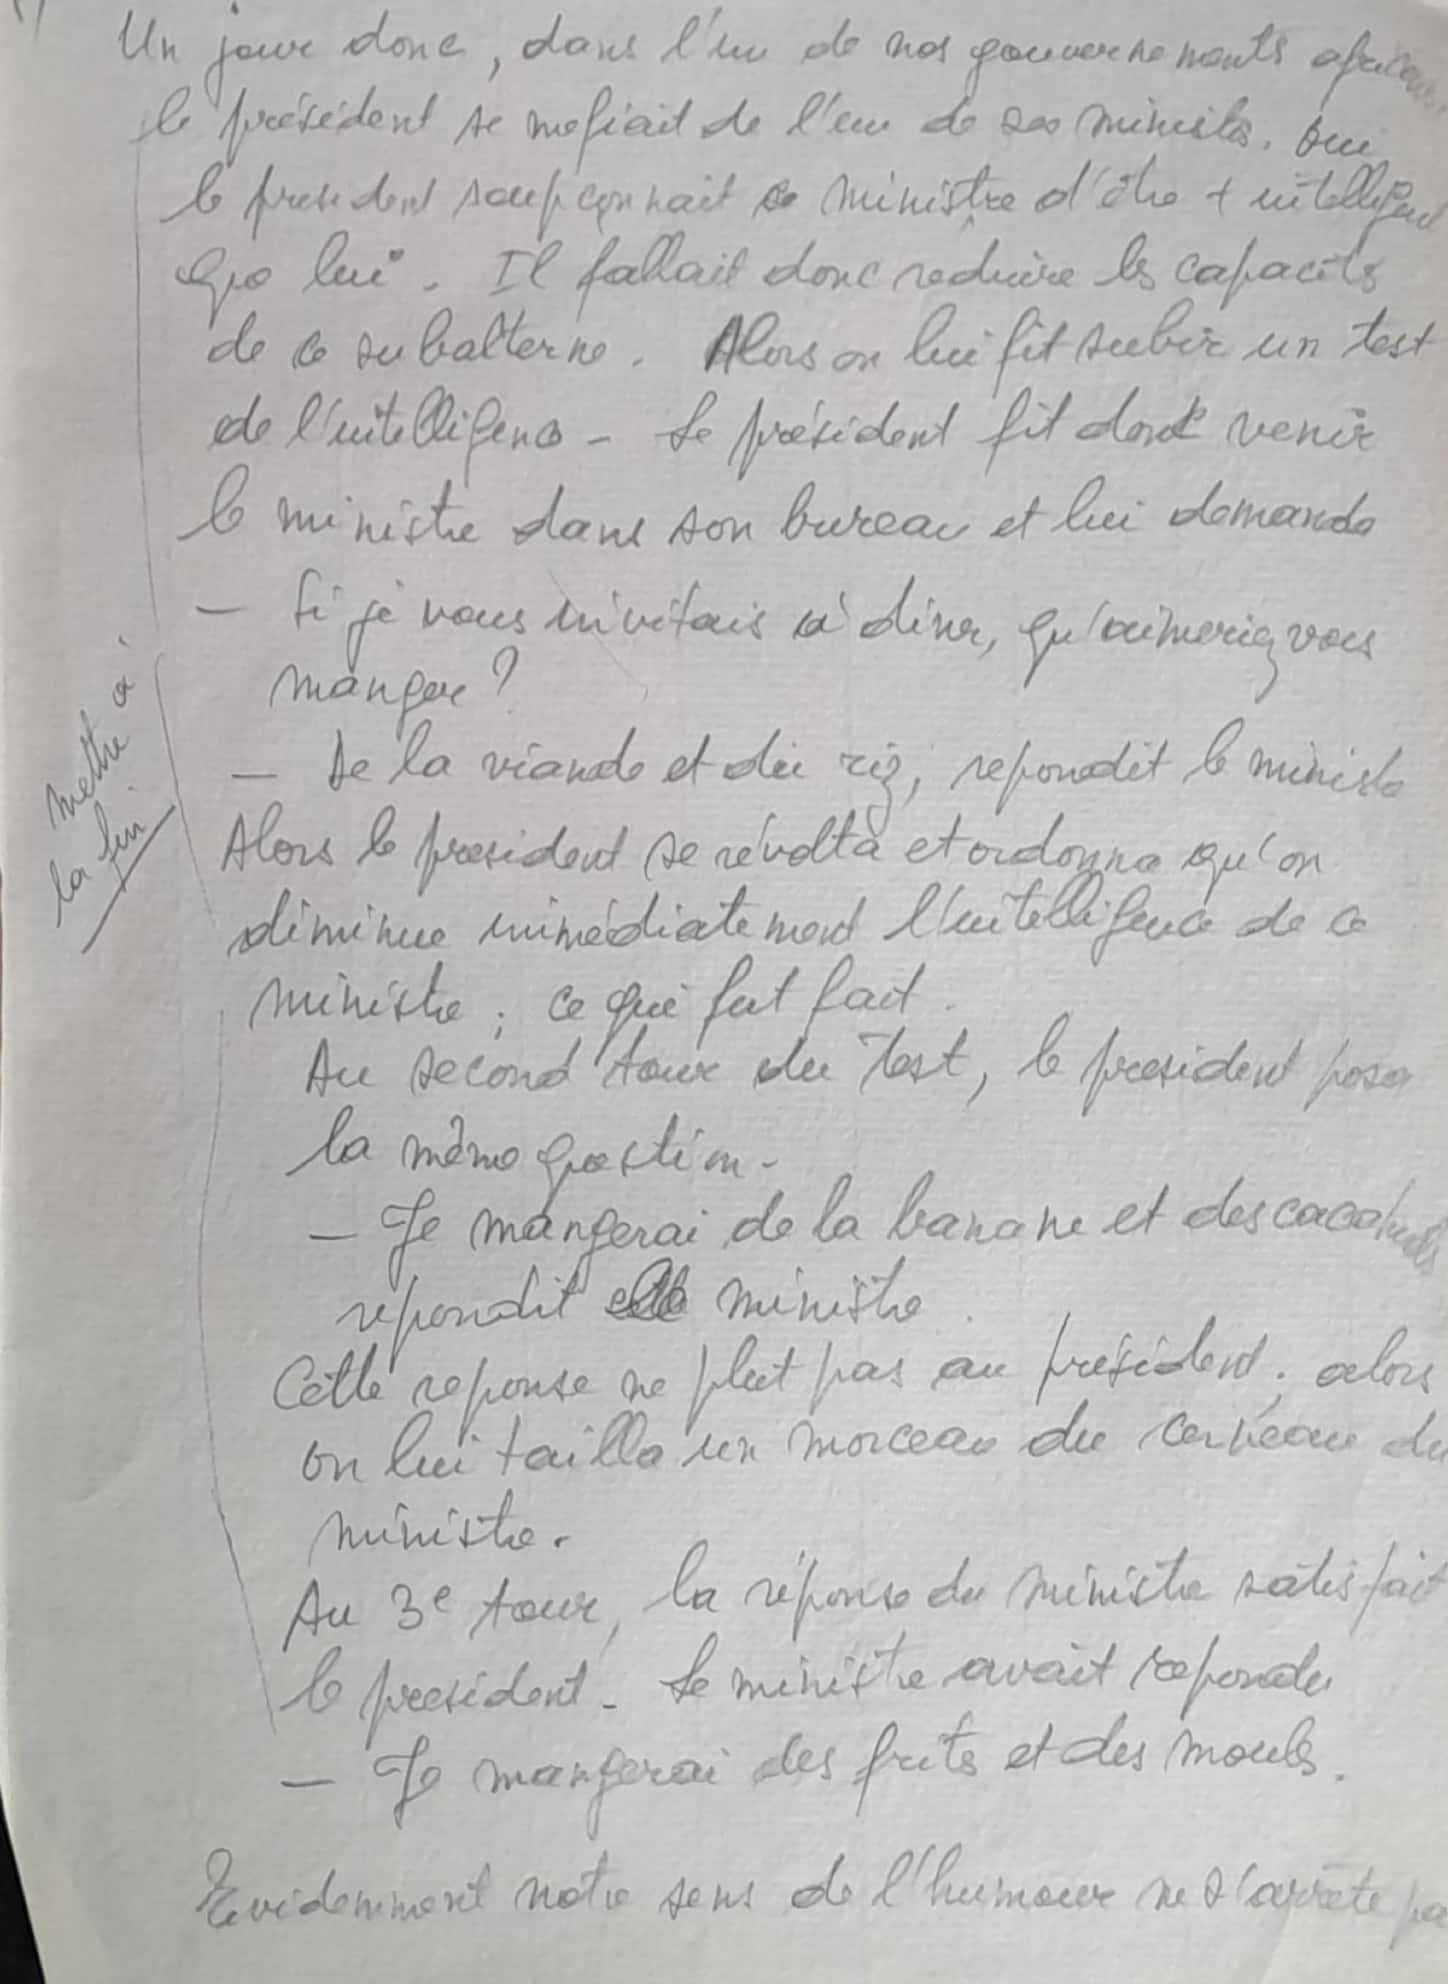 Un jour donc, dans l'un de nos gouvernements africains
le président se mefiait de l'un de ses ministres. Oui
le president soupçonnait ce ministre d'être + intelligent
que lui. Il fallait donc reduire les capacités
de ce subalterne. Alors on lui fit subir un test
de l'intelligence - Le président fit donc venir
le ministre dans son bureau et lui demanda
- Si je vous invitais à diner, qu'aimeriez vous
manger ?
- De la viande et du riz, repondit le ministre
Alors le president se révolta et ordonna qu'on
diminue immédiatement l'intelligence de ce
ministre ; ce qui fut fait.
Au second tour du test, le president posa
la même question -
- Je mangerai de la banane et des cacahuetes
repondit le ministre.
Cette reponse ne plut pas au président ; alors
on lui tailla un morceau du cerveau du
ministre.
Au 3e tour, la réponse du ministre satisfait
le president - Le ministre avait repondu
- Je mangerai des frites et des moules.
Evidemment notre sens de l'humour ne s'arrête pa
mettre à
la fin